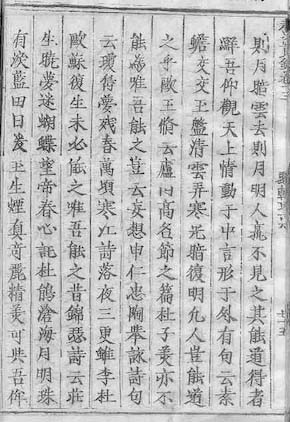 則月暗雲去則月明人孰不見之其能道得者
辭吾仰觀天上情動于中言形于外有句云素
蟾交交玉盤清雲弄寒光暗復明凢人豈能道
之乎歐王脩云廬山高名節之篇杜子美亦不
能爲唯吾能之豈云妄想申仁忠陶舉詠詩句
云瓊待夢残春萬頃寒江詩落夜三更雖李杜
歐蘇復生未必能之唯吾能之昔錦瑟詩云莊
生曉夢迷蝴蝶望帝春心託杜鵑滄海月明珠
有淚藍田日暖玉生煙真奇麗精美可與吾侔